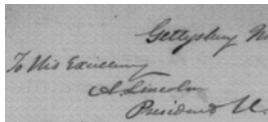 Gettysburg N
To His Excellency
A. Lincoln
President U.